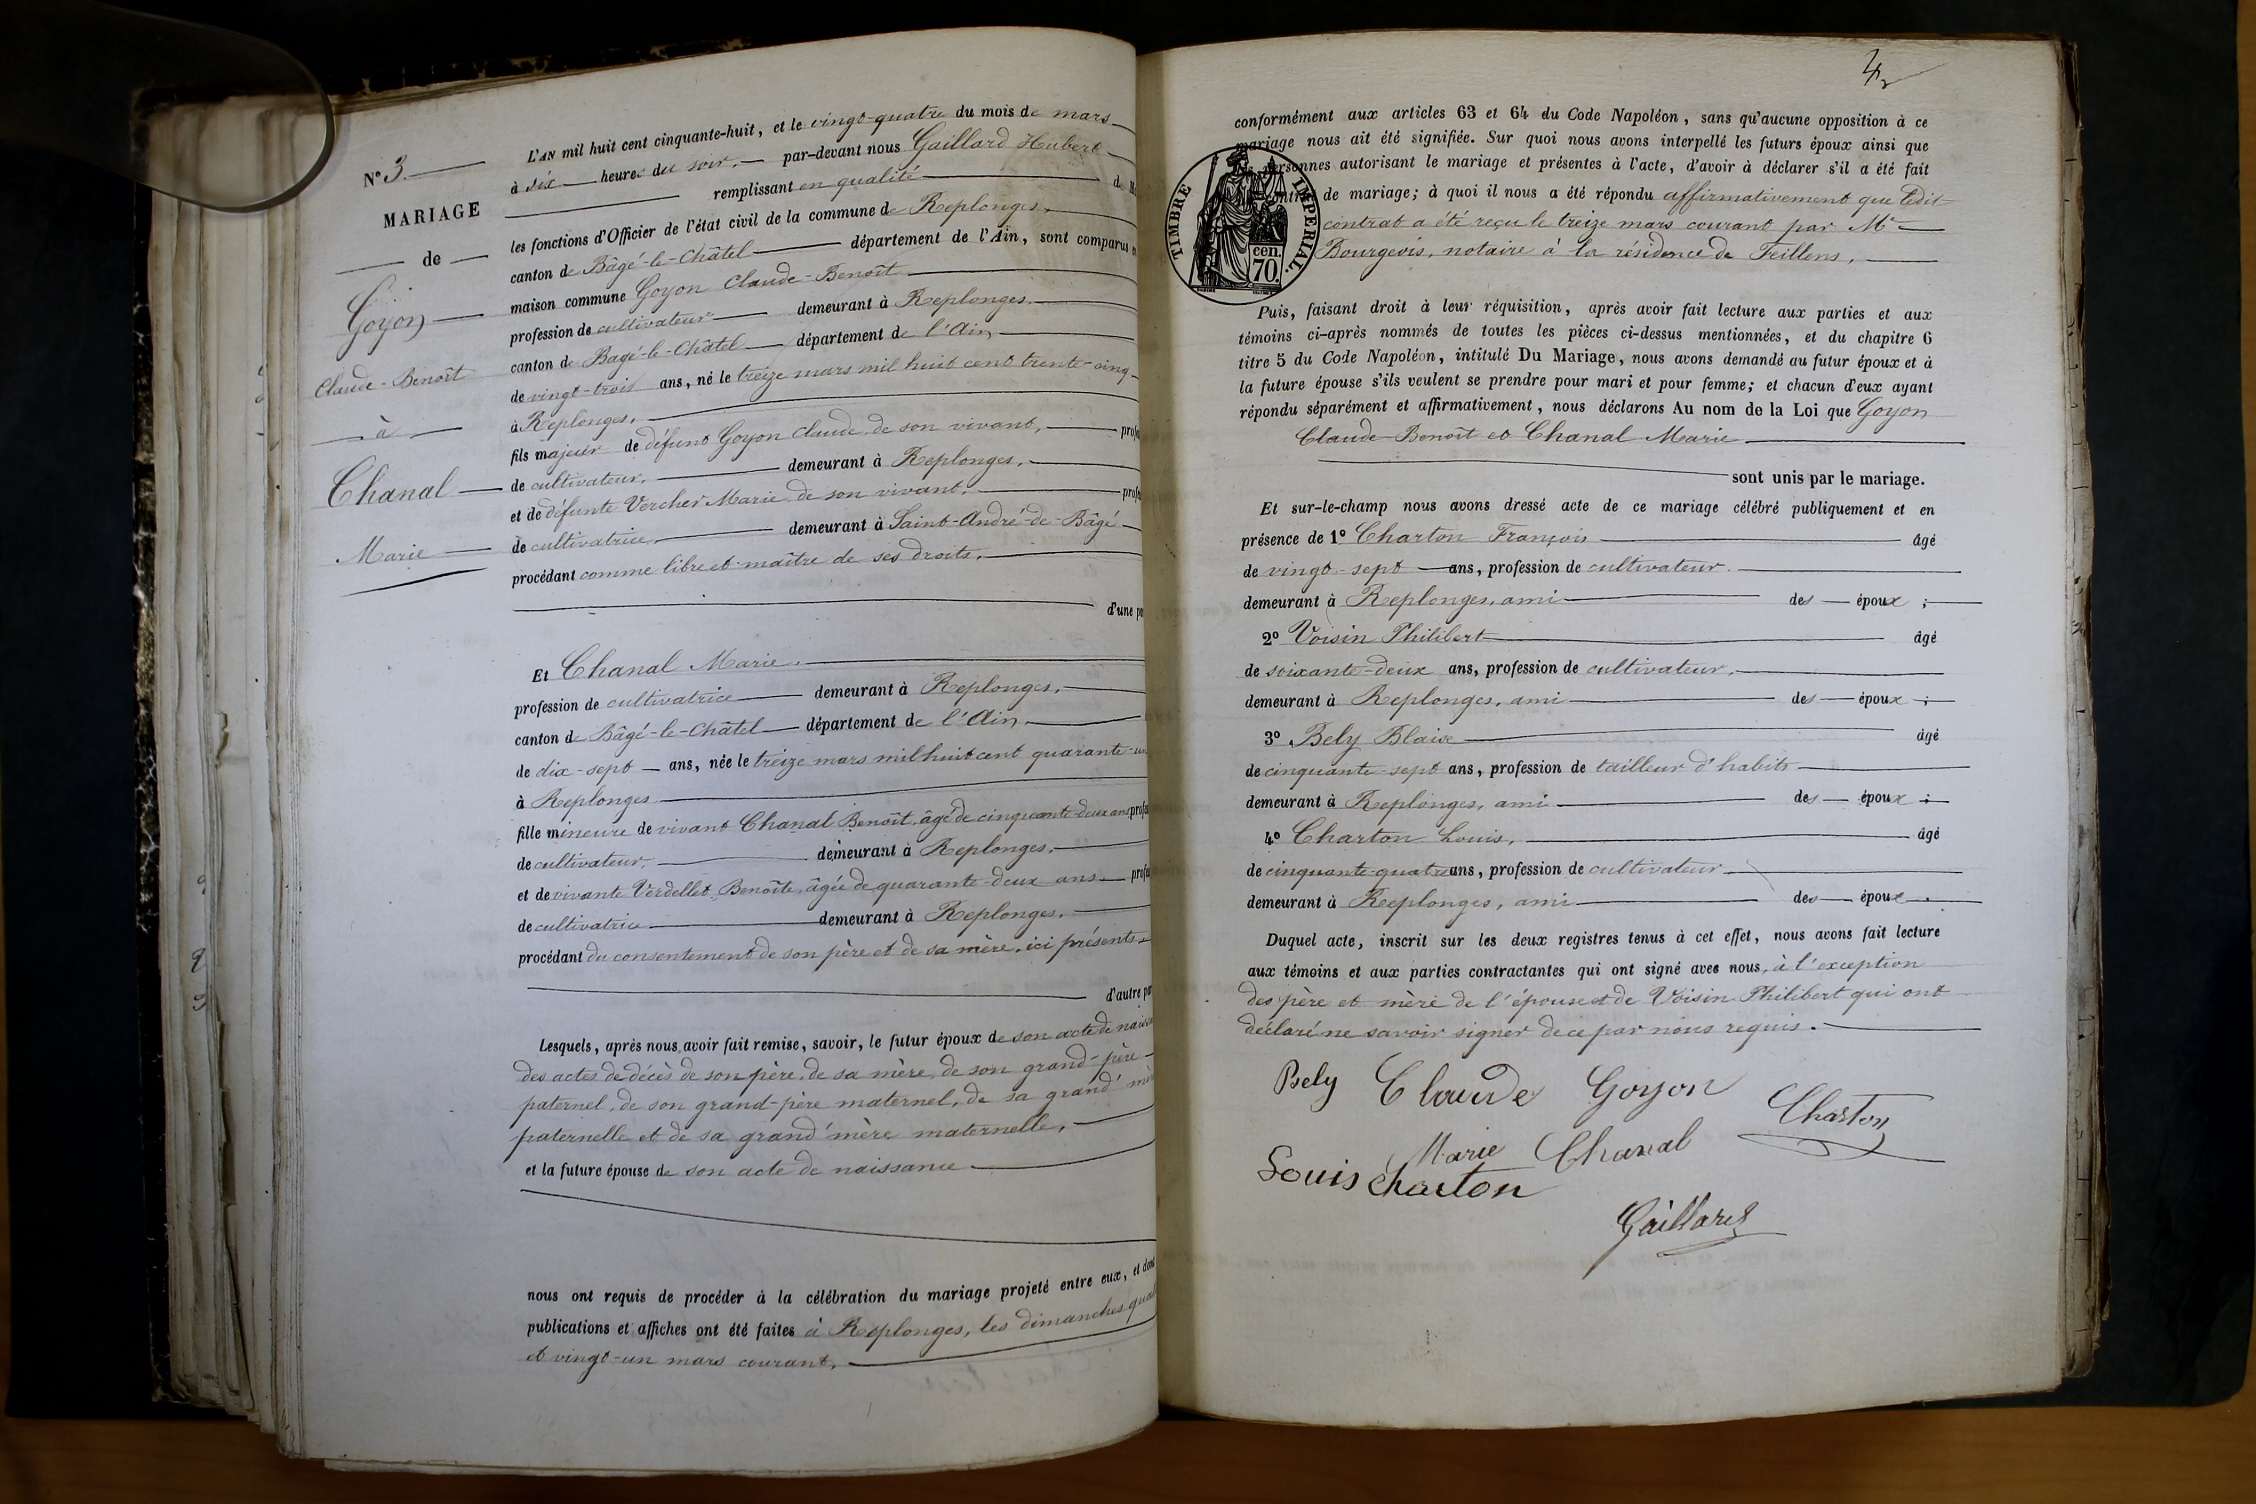 N° 3
MARIAGE
de
Goyon
Claude-Benoît
à
Chanal
Marie
L'AN mil huit cent cinquante-huit, et le vingt-quatre du mois de mars
à six heures du soir, par-devant nous Gaillard Hubert
remplissant en qualité de
les fonctions d'Officier de l'état civil de la commune de Replonges,
canton de Bâgé-le-Châtel département de l'Ain, sont comparus en
maison commune Goyon Claude-Benoît
profession de cultivateur demeurant à Replonges
canton de Bagé-le-Châtel département de l'Ain
de vingt-trois ans, né le treize mars mil huit cent trente-cinq
à Replonges,
fils majeur de défunt Goyon Claude de son vivant,
de cultivateur, demeurant à Replonges,
et de défunte Vercher Marie de son vivant,
de cultivatrice, demeurant à Saint-André-de-Bâgé
procédant comme libre et maître de ses droits,
d'une
Et Chanal Marie,
profession de cultivatrice demeurant à Replonges,
canton de Bâgé-le-Châtel département de l'Ain
de dix-sept ans, née le treize mars mil huit cent quarante-un
à Replonges
fille mineure de vivant Chanal Benoît, âgé de cinquante-deux ans
de cultivateur, demeurant à Replonges,
et de vivante Verdellet Benoîte, âgée de quarante-deux ans
de cultivatrice demeurant à Replonges,
procédant du consentement de son père et de sa mère, ici présents
d'autre
Lesquels, après nous avoir fait remise, savoir, le futur époux de son acte de
des actes de décès de son père, de sa mère, de son grand-père
paternel, de son grand-père maternel, de sa grand'
paternelle et de sa grand'mère maternelle,
et la future épouse de son acte de naissance
nous ont requis de procéder à la célébration du mariage projeté entre eux, et dont
publications et affiches ont été faites à Replonges, les dimanches
et vingt-un mars courant,
conformément aux articles 63 et 64 du Code Napoléon, sans qu'aucune opposition à ce
mariage nous ait été signifiée. Sur quoi nous avons interpellé les futurs époux ainsi que
personnes autorisant le mariage et présentes à l'acte, d'avoir à déclarer s'il a été fait
de mariage; à quoi il nous a été répondu affirmativement que ledit
contrat a été reçu le treize mars courant par Me
Bourgeois, notaire à la résidence de Feillens,
TIMBRE IMPERIAL.
cen.
70.
Puis, faisant droit à leur réquisition, après avoir fait lecture aux parties et aux
témoins ci-après nommés de toutes les pièces ci-dessus mentionnées, et du chapitre 6
titre 5 du Code Napoléon, intitulé Du Mariage, nous avons demandé au futur époux et à
la future épouse s'ils veulent se prendre pour mari et pour femme; et chacun d'eux ayant
répondu séparément et affirmativement, nous déclarons Au nom de la Loi que Goyon
Claude-Benoît et Chanal Marie
sont unis par le mariage.
Et sur-le-champ nous avons dressé acte de ce mariage célébré publiquement et en
présence de 1° Charton François âgé
de vingt-sept ans, profession de cultivateur
demeurant à Replonges, ami des époux ;
2° Voisin Philibert âgé
de soixante-deux ans, profession de cultivateur,
demeurant à Replonges, ami des époux ;
3° Bely Blaise âgé
de cinquante-sept ans, profession de tailleur d'habits
demeurant à Replonges, ami des époux ;
4° Charton Louis, âgé
de cinquante-quatre ans, profession de cultivateur
demeurant à Replonges, ami des époux.
Duquel acte, inscrit sur les deux registres tenus à cet effet, nous avons fait lecture
aux témoins et aux parties contractantes qui ont signé avec nous, à l'exception
des père et mère de l'épouse et de Voisin Philibert qui ont
déclaré ne savoir signer de ce par nous requis.
Bely Claude Goyon
Charton
Marie Chanal
Louis Charton
Gaillard